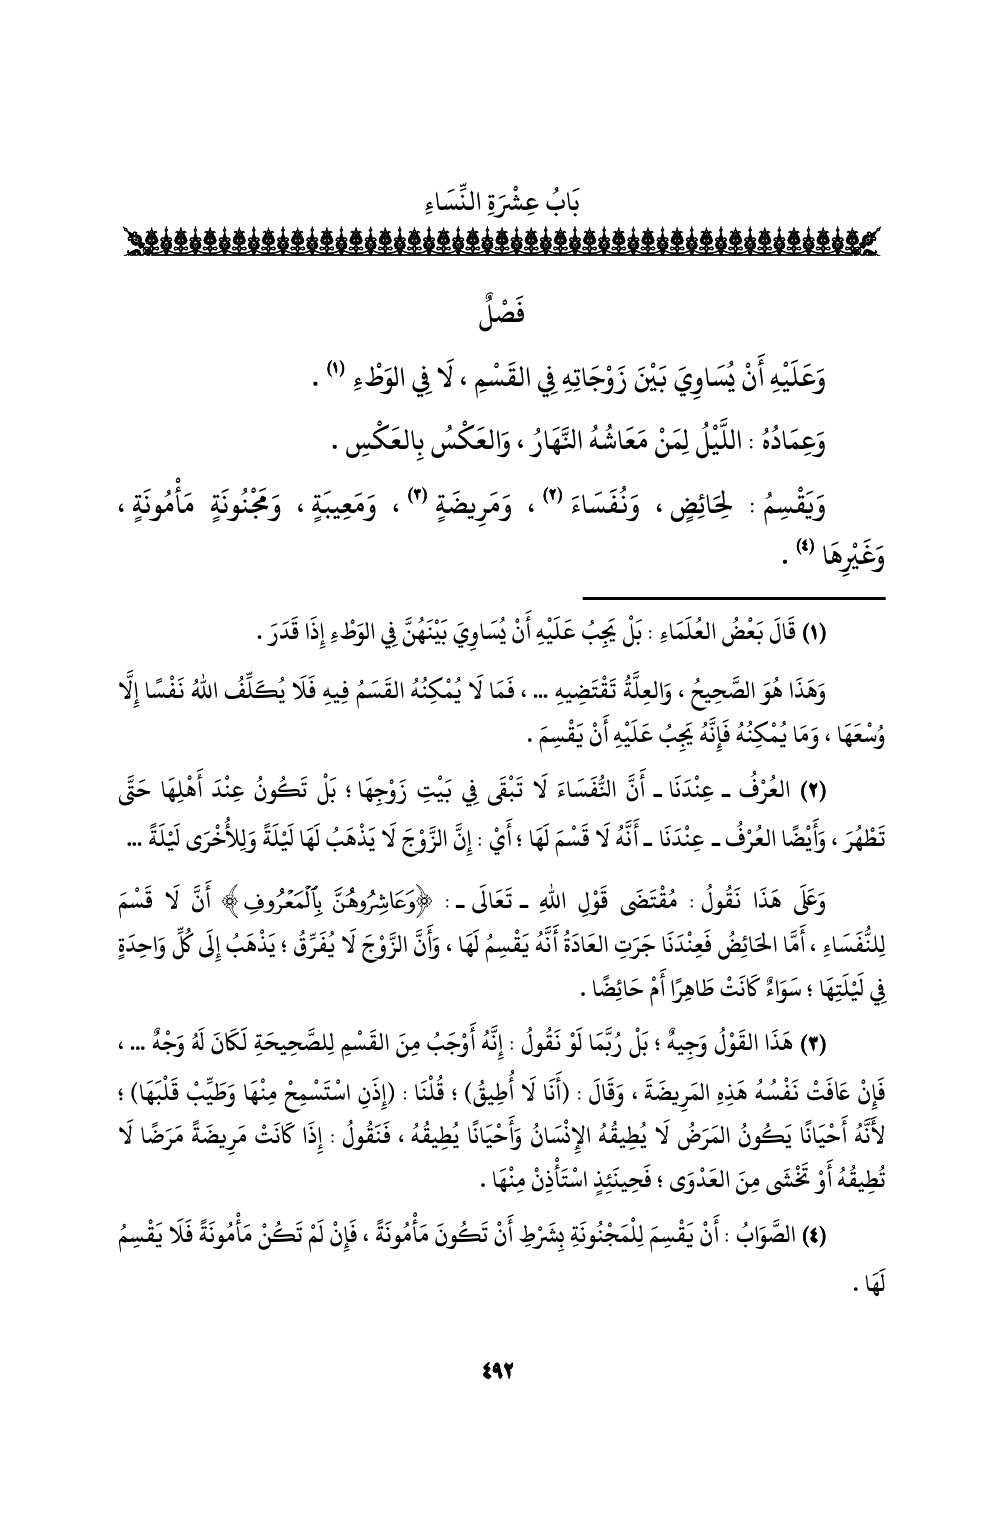 بَابُ عِشْرَةِ النِّسَاءِ
فَصْلٌ
وَعَلَيْهِ أَنْ يُسَاوِيَ بَيْنَ زَوْجَاتِهِ فِي القَسْمِ ، لَا فِي الوَطْءِ (١) .
وَعِمَادُهُ : اللَّيْلُ لِمَنْ مَعَاشُهُ النَّهَارُ ، وَالعَكْسُ بِالعَكْسِ .
وَيَقْسِمُ : لِحَائِضٍ ، وَنُفَسَاءَ (٢) ، وَمَرِيضَةٍ (٣) ، وَمَعِيبَةٍ ، وَمَجْنُونَةٍ مَأْمُونَةٍ ،
وَغَيْرِهَا (٤) .
(١) قَالَ بَعْضُ العُلَمَاءِ : بَلْ يَجِبُ عَلَيْهِ أَنْ يُسَاوِيَ بَيْنَهُنَّ فِي الوَطْءِ إِذَا قَدَرَ .
وَهَذَا هُوَ الصَّحِيحُ ، وَالعِلَّةُ تَقْتَضِيهِ ... ، فَمَا لَا يُمْكِنُهُ القَسَمُ فِيهِ فَلَا يُكَلِّفُ اللهُ نَفْسًا إِلَّا
وُسْعَهَا ، وَمَا يُمْكِنُهُ فَإِنَّهُ يَجِبُ عَلَيْهِ أَنْ يَقْسِمَ .
(٢) العُرْفُ ـ عِنْدَنَا ـ أَنَّ النُّفَسَاءَ لَا تَبْقَى فِي بَيْتِ زَوْجِهَا ؛ بَلْ تَكُونُ عِنْدَ أَهْلِهَا حَتَّى
تَطْهُرَ ، وَأَيْضًا العُرْفُ ـ عِنْدَنَا ـ أَنَّهُ لَا قَسْمَ لَهَا ؛ أَيْ : إِنَّ الزَّوْجَ لَا يَذْهَبُ لَهَا لَيْلَةً وَلِلأُخْرَى لَيْلَةً ...
وَعَلَى هَذَا نَقُولُ : مُقْتَضَى قَوْلِ اللهِ ـ تَعَالَى ـ : ﴿وَعَاشِرُوهُنَّ بِٱلْمَعْرُوفِ﴾ أَنَّ لَا قَسْمَ
لِلنُّفَسَاءِ ، أَمَّا الحَائِضُ فَعِنْدَنَا جَرَتِ العَادَةُ أَنَّهُ يَقْسِمُ لَهَا ، وَأَنَّ الزَّوْجَ لَا يُفَرِّقُ ؛ يَذْهَبُ إِلَى كُلِّ وَاحِدَةٍ
فِي لَيْلَتِهَا ؛ سَوَاءٌ كَانَتْ طَاهِرًا أَمْ حَائِضًا .
(٣) هَذَا القَوْلُ وَجِيهٌ ؛ بَلْ رُبَّمَا لَوْ نَقُولُ : إِنَّهُ أَوْجَبُ مِنَ القَسْمِ لِلصَّحِيحَةِ لَكَانَ لَهُ وَجْهٌ ... ،
فَإِنْ عَافَتْ نَفْسُهُ هَذِهِ المَرِيضَةَ ، وَقَالَ : (أَنَا لَا أُطِيقُ) ؛ قُلْنَا : (إِذَنِ اسْتَسْمِحْ مِنْهَا وَطَيِّبْ قَلْبَهَا) ؛
لأَنَّهُ أَحْيَانًا يَكُونُ المَرَضُ لَا يُطِيقُهُ الإِنْسَانُ وَأَحْيَانًا يُطِيقُهُ ، فَنَقُولُ : إِذَا كَانَتْ مَرِيضَةً مَرَضًا لَا
تُطِيقُهُ أَوْ تَخْشَى مِنَ العَدْوَى ؛ فَحِينَئِذٍ اسْتَأْذِنْ مِنْهَا .
(٤) الصَّوَابُ : أَنْ يَقْسِمَ لِلْمَجْنُونَةِ بِشَرْطِ أَنْ تَكُونَ مَأْمُونَةً ، فَإِنْ لَمْ تَكُنْ مَأْمُونَةً فَلَا يَقْسِمُ
لَهَا .
٤٩٢